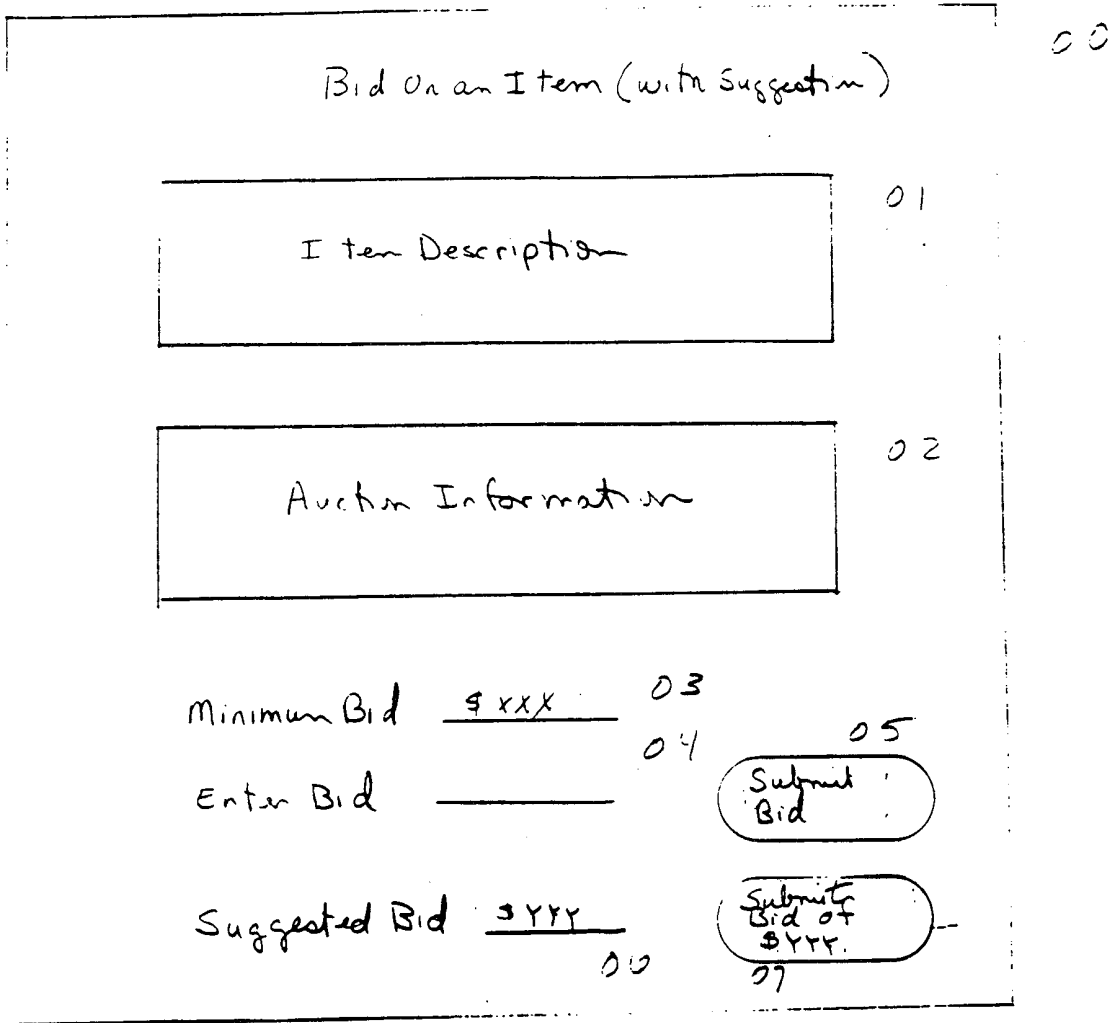 00
Bid On an Item (with Suggestion)
01
Item Description
02
Auction Information
Minimum Bid $XXX 03
04 05
Enter Bid Submit
Bid
Suggested Bid $YYY Submit
Bid of
$YYY.
06 07